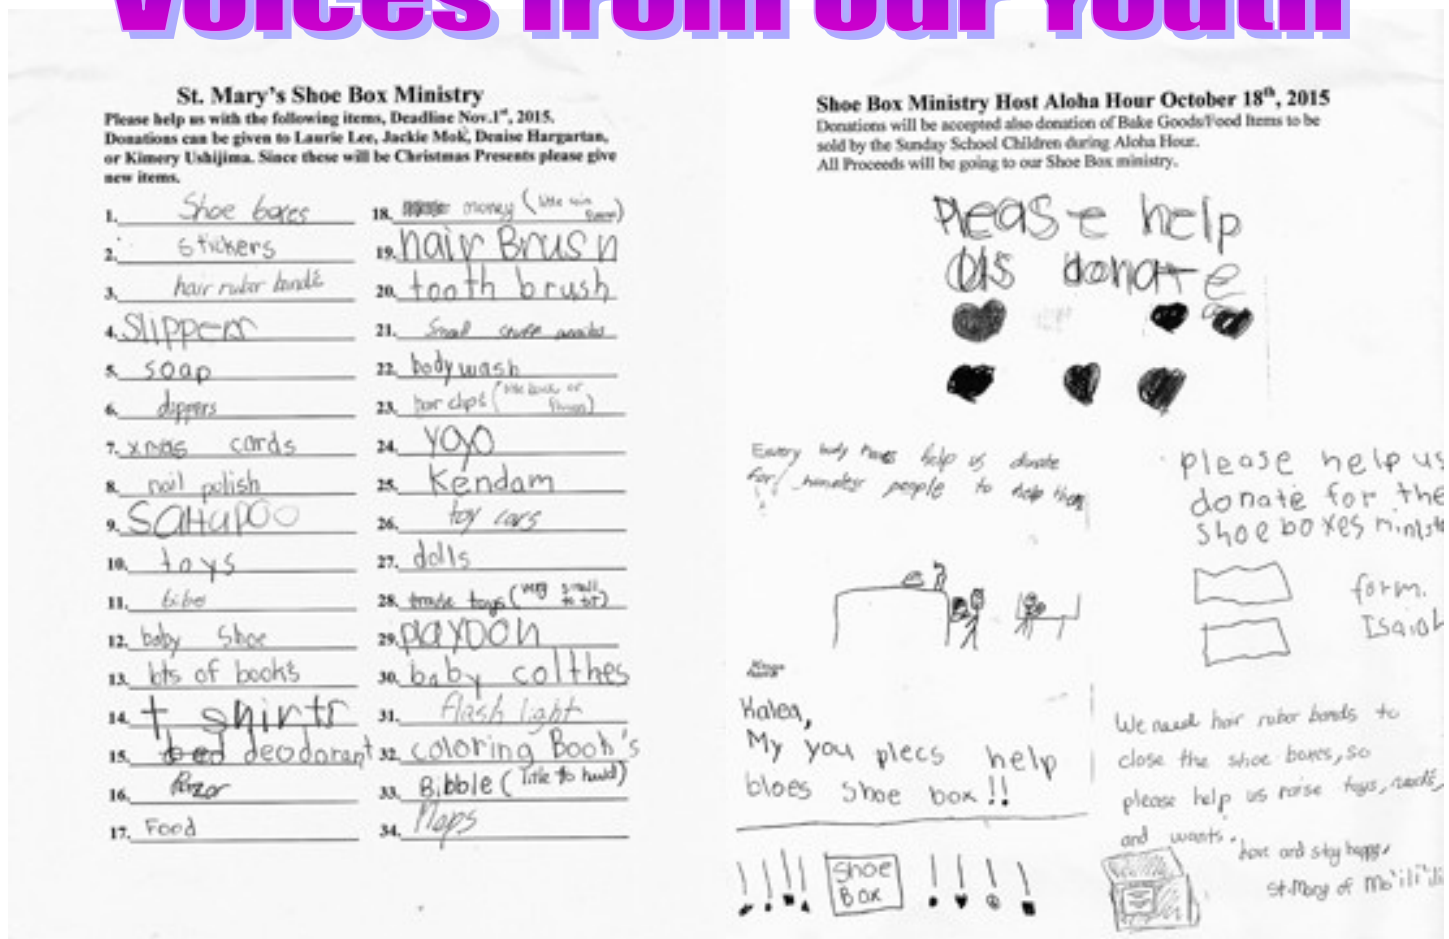 Voices from Our Youth
St. Mary's Shoe Box Ministry
Please help us with the following items, Deadline Nov.1st, 2015.
Donations can be given to Laurie Lee, Jackie Mok, Denise Hargartan,
or Kimery Ushijima. Since these will be Christmas Presents please give
new items.
1. Shoe boxes
2. stickers
3. hair rubor bands
4. Slippers
5. soap
6. dippers
7. xmas cards
8. nail polish
9. SaHaPOO
10. toys
11. bibe
12. baby shoe
13. bts of books
14. t shirts
15. deodorant
16. Razor
17. Food
18. money (little
19. hair Brush
20. tooth brush
21. Small
22. body wash
23. hair clips (little
24. yoyo
25. Kendam
26. toy cars
27. dolls
28. trade toys (very small to fit)
29. playDOH
30. baby colthes
31. flash light
32. coloring Book's
33. Bibble (little to hold)
34. Maps
Shoe Box Ministry Host Aloha Hour October 18th, 2015
Donations will be accepted also donation of Bake Goods/Food Items to be
sold by the Sunday School Children during Aloha Hour.
All Proceeds will be going to our Shoe Box ministry.
Please help
us donate
Every body help us donate
for homeless people to help them
please help us
donate for the
shoe boxes
form.
Isaiah
Kalea,
My you plecs help
bloes shoe box!!
Shoe
Box
We need hair rubor bands to
close the shoe boxes, so
please help us raise toys, needs,
and wants.
love and stay happy,
St. Mary of Mo'ili'ili